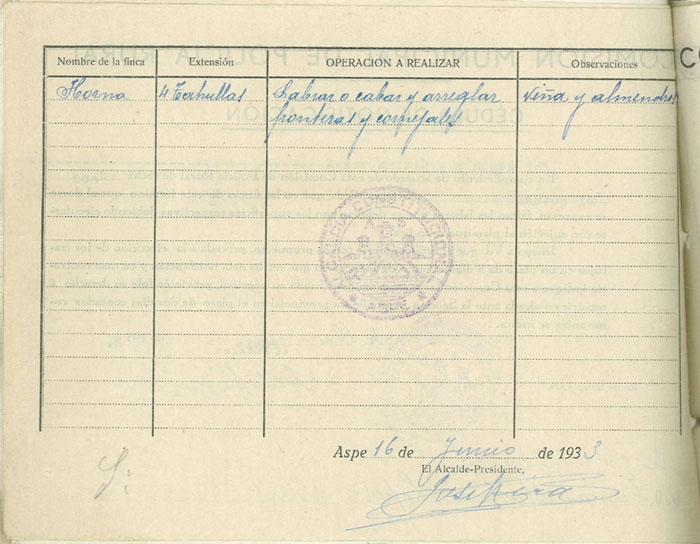 Nombre de la finca Extensión OPERACION A REALIZAR Observaciones
Horna 4 Tahullas Labrar o cabar y arreglar viña y almendros
fronteras y
ALCALDIA CONSTITUCIONAL
ASPE
Aspe 16 de Junio de 1933
El Alcalde-Presidente,